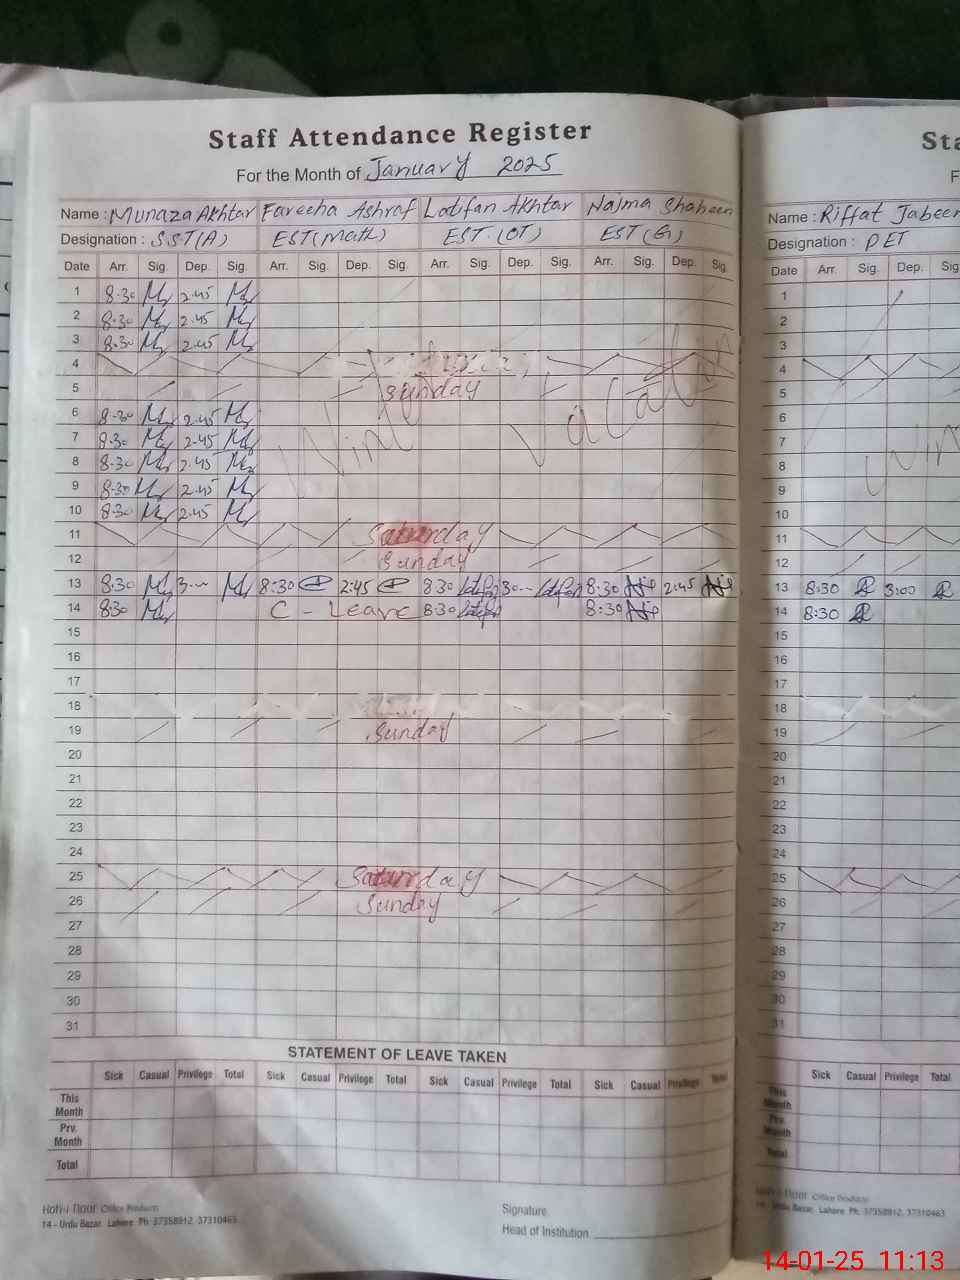 Staff Attendance Register
For the Month of January 2025
Name : Munaza Akhtar Fareeha Ashraf Latifan Akhtar Najma Shaheen
Designation : S.S.T(A) EST(Math) EST.(OT) EST(G)
Date Arr. Sig. Dep. Sig. Arr. Sig. Dep. Sig. Arr. Sig. Dep. Sig. Arr. Sig. Dep. Sig.
1 8:30 2:45
2 8:30 2:45
3 8:30 2:45
4
5 Sunday
6 8:30 2:45
7 8:30 2:45
8 8:30 2:45
9 8:30 2:45
10 8:30 2:45
Vacation
11 Saturday
12 Sunday
13 8:30 3 8:30 2:45 8:30 3 8:30 2:45
14 8:30 C - Leave 8:30 8:30
15
16
17
18
19 Sunday
20
21
22
23
24
25 Saturday
26 Sunday
27
28
29
30
31
STATEMENT OF LEAVE TAKEN
Sick Casual Privilege Total Sick Casual Privilege Total Sick Casual Privilege Total Sick Casual Privilege Total
This Month
Prv. Month
Total
Office Products
14 - Urdu Bazar, Lahore Ph: 37358912, 37310463
Signature
Head of Institution
Sta
F
Name : Riffat Jabeen
Designation : PET
Date Arr. Sig. Dep. Sig
1
2
3
4
5
6
7
8
9
10
11
12
13 8:30 3:00
14 8:30
15
16
17
18
19
20
21
22
23
24
25
26
27
28
29
30
31
Sick Casual Privilege Total
This Month
Prv. Month
Total
Office Products
14 - Urdu Bazar, Lahore Ph: 37358912, 37310463
14-01-25 11:13